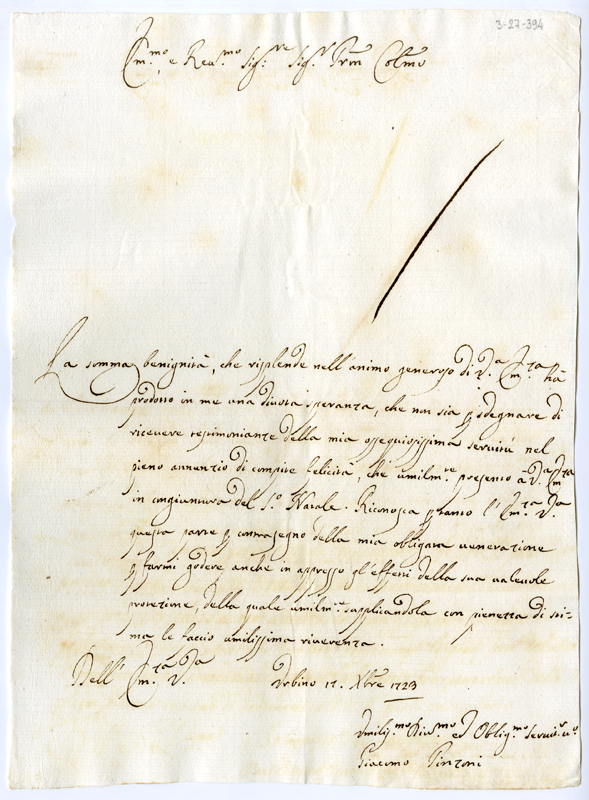 3-27-394
Em.mo, e Rev.mo Sig.re Sig.r Prōn Colmo
La somma benignità, che risplende nell'animo generoso di V.ra Em.za hà
prodotto in me una divota speranza, che non sia p sdegnare di
ricevere testimonianze della mia ossequiosissima servitù nel
pieno annunzio di compite felicità, che umilm.te presento a V.ra Em.za
in congiuntura del S.o Natale. Riconosca ptanto l'Em.za V.ra
questa parte p contrasegno della mia obligata venerazione
p farmi godere anche in appresso gl'effetti della sua valevole
protezione, della quale umilm.te supplicandola con pienezza di sti=
ma le faccio umilissima riverenza.
Dell' Em.za V.ra Urbino 17. Xbre 1723
Umiliss.mo Div.mo ed Oblig.mo Servit.r v.o
Giacomo Pinzoni